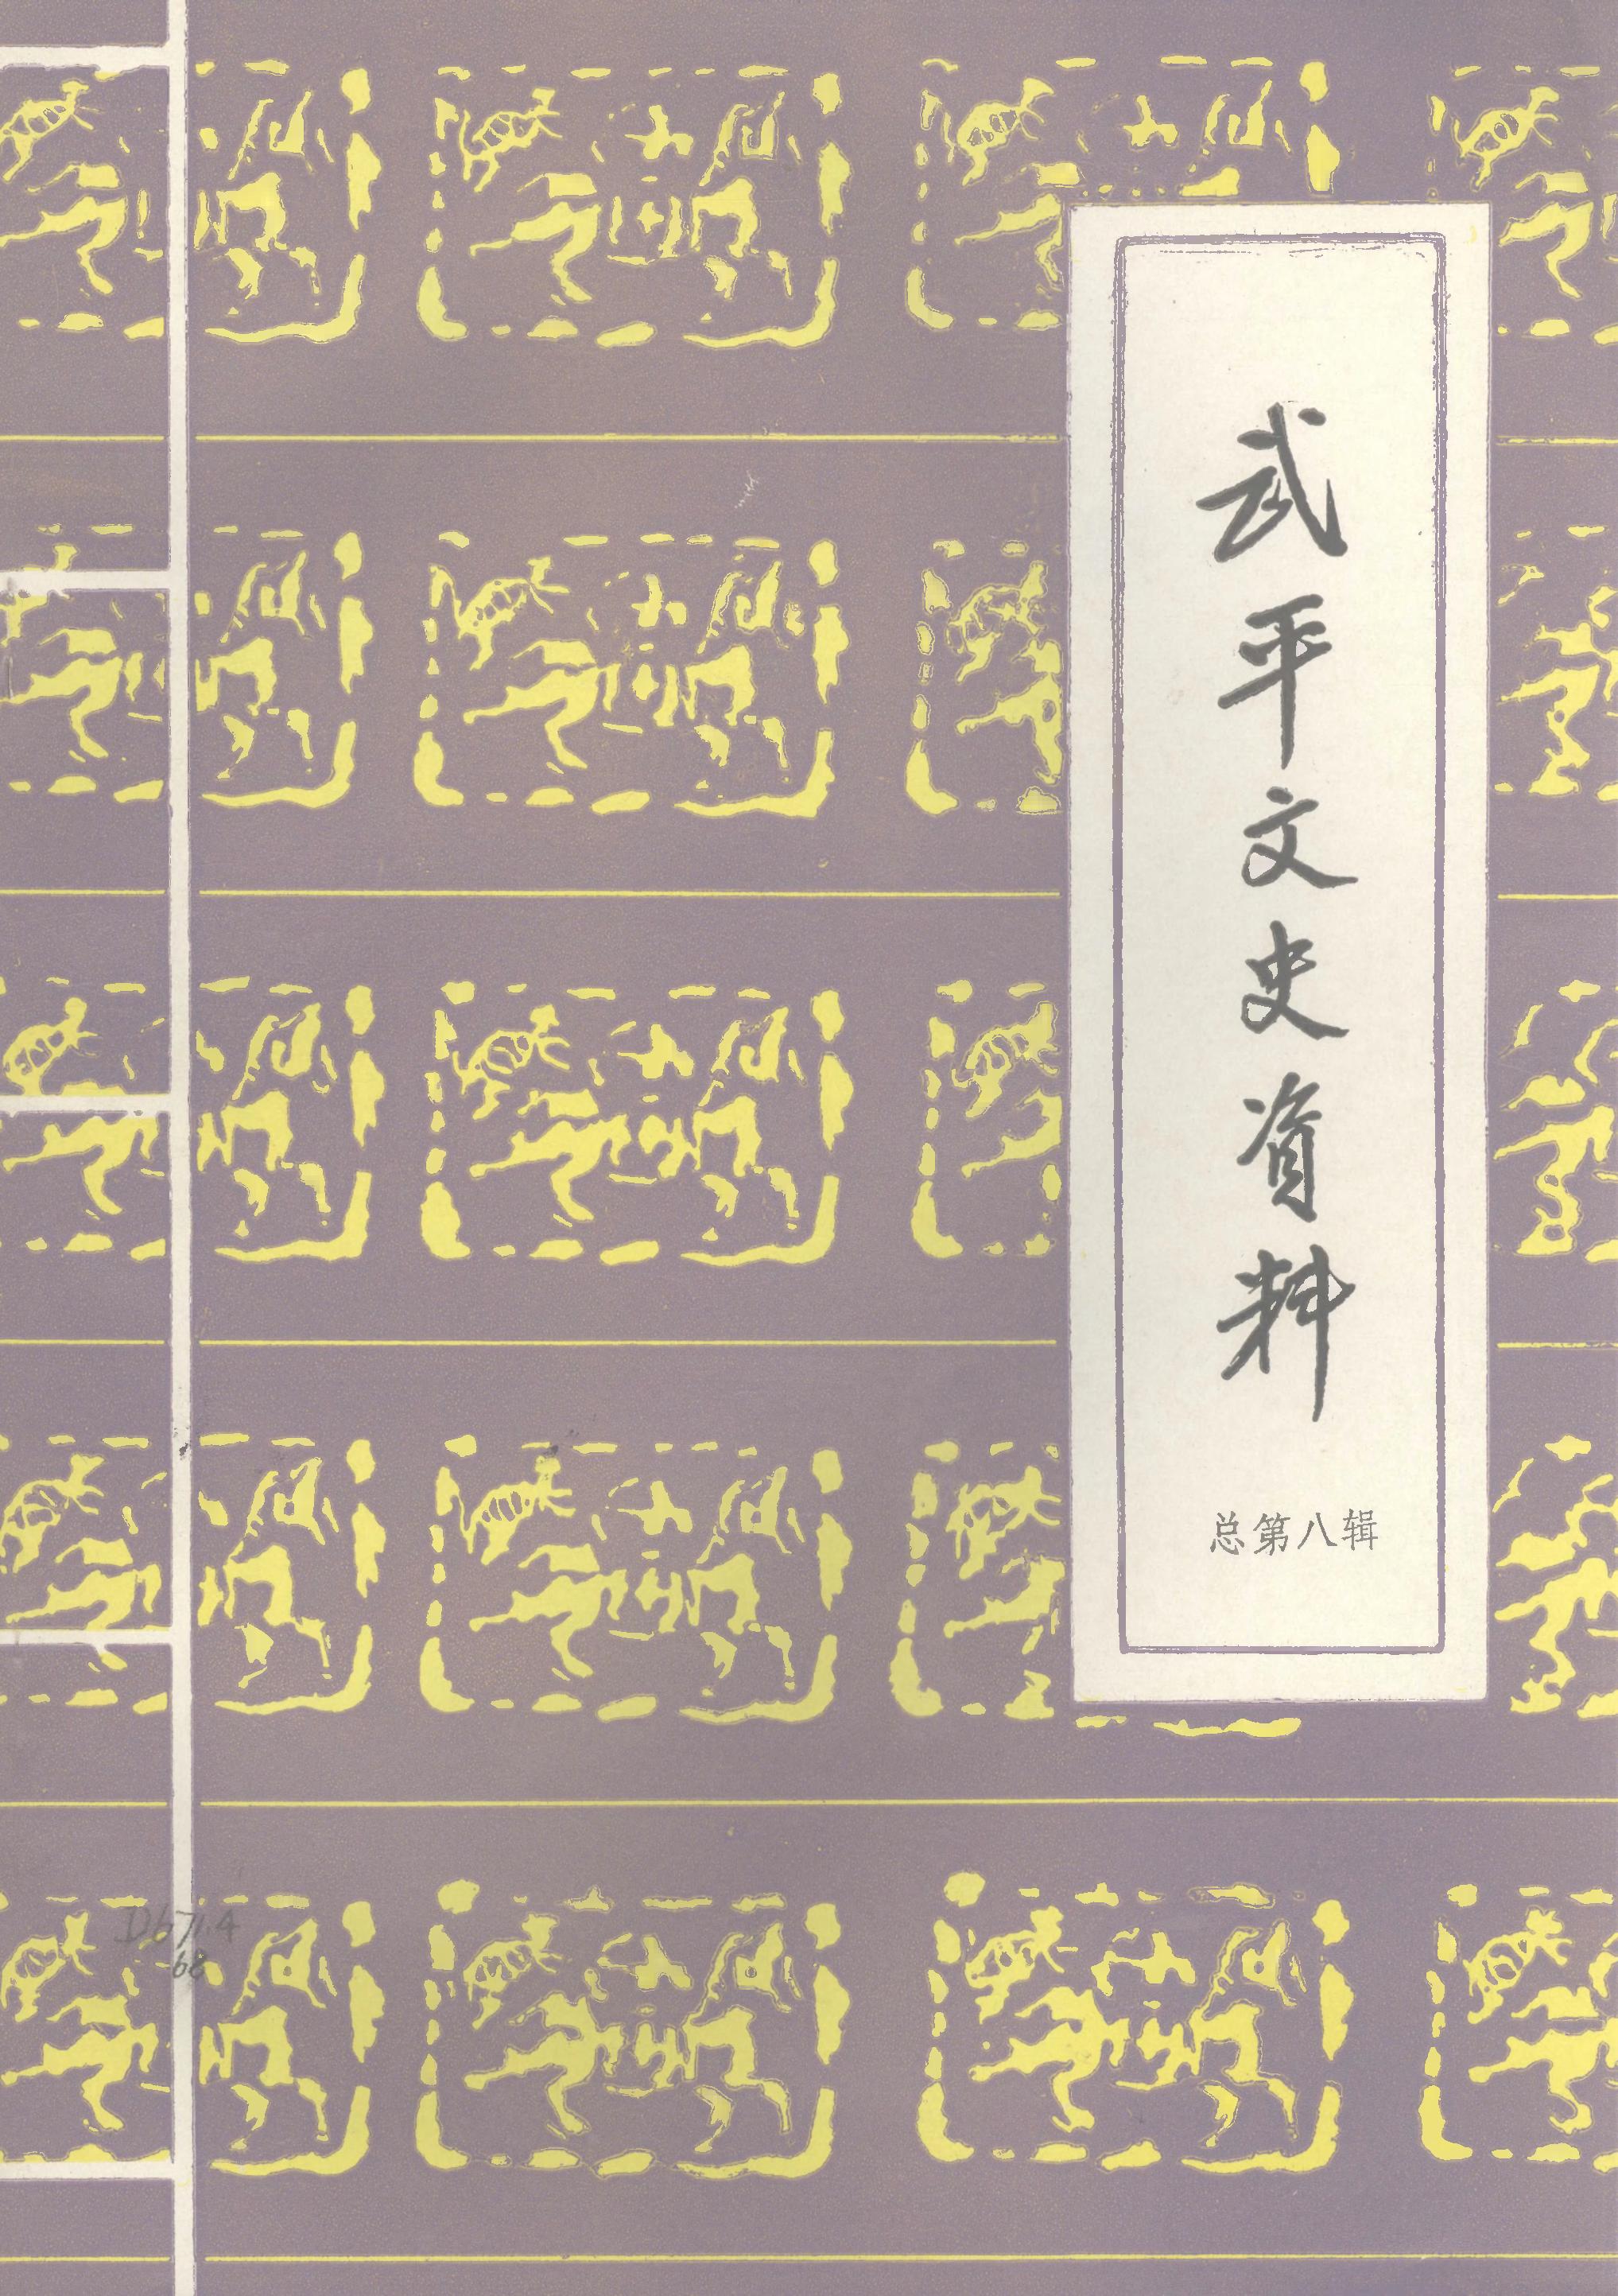 武平文史资料
总第八辑
D671.4
68